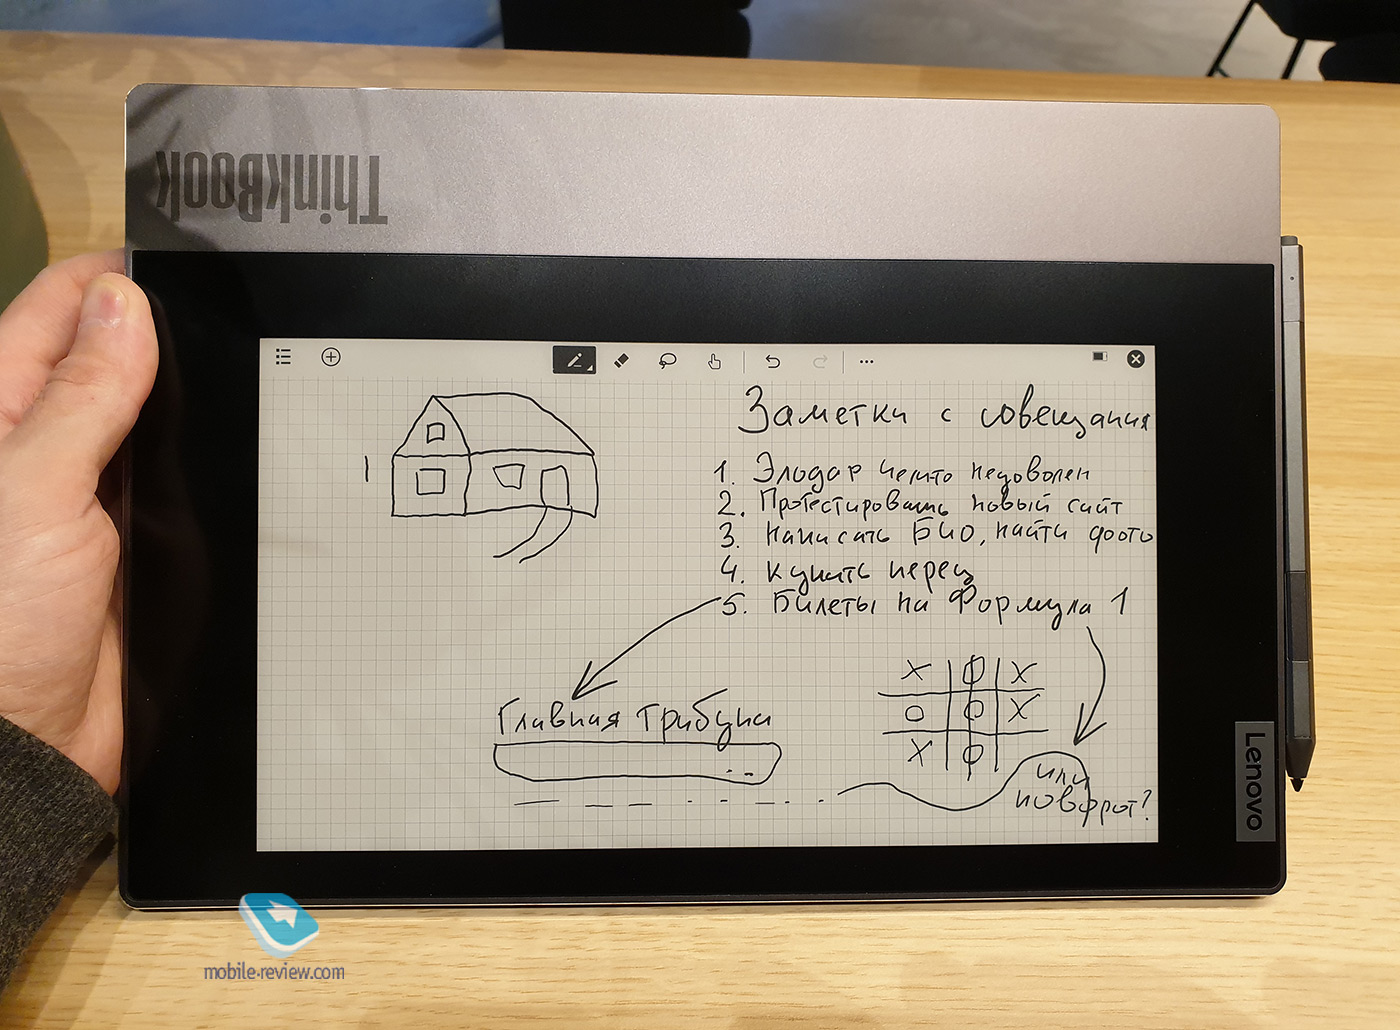 ThinkBook
Заметки с совещания
1. Элодар чем-то недоволен
2. Протестировать новый сайт
3. Написать БИО, найти фото
4. купить перец
5. Билеты на Формула 1
Главная трибуна
X O X
O O X
X O
или
поворот?
Lenovo
mobile-review.com